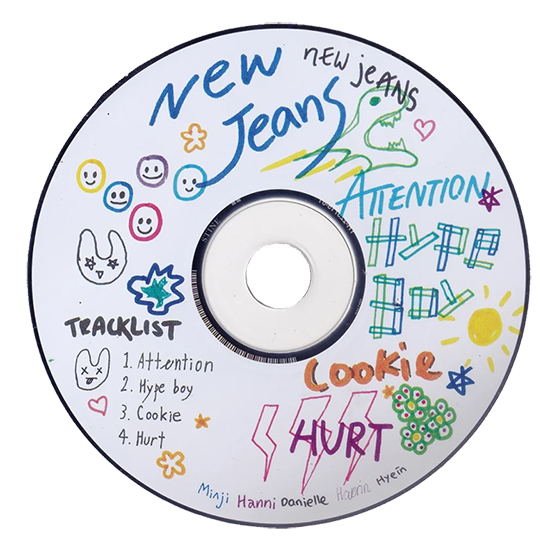 New
Jeans
NEW JEANS
ATTENTION
HYPE
BOY
TRACKLIST
1. Attention
2. Hype boy
3. Cookie
4. Hurt
Cookie
HURT
Minji Hanni Danielle Haerin Hyein